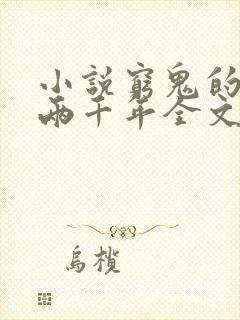 小說窮鬼的
兩千年全文
烏欖